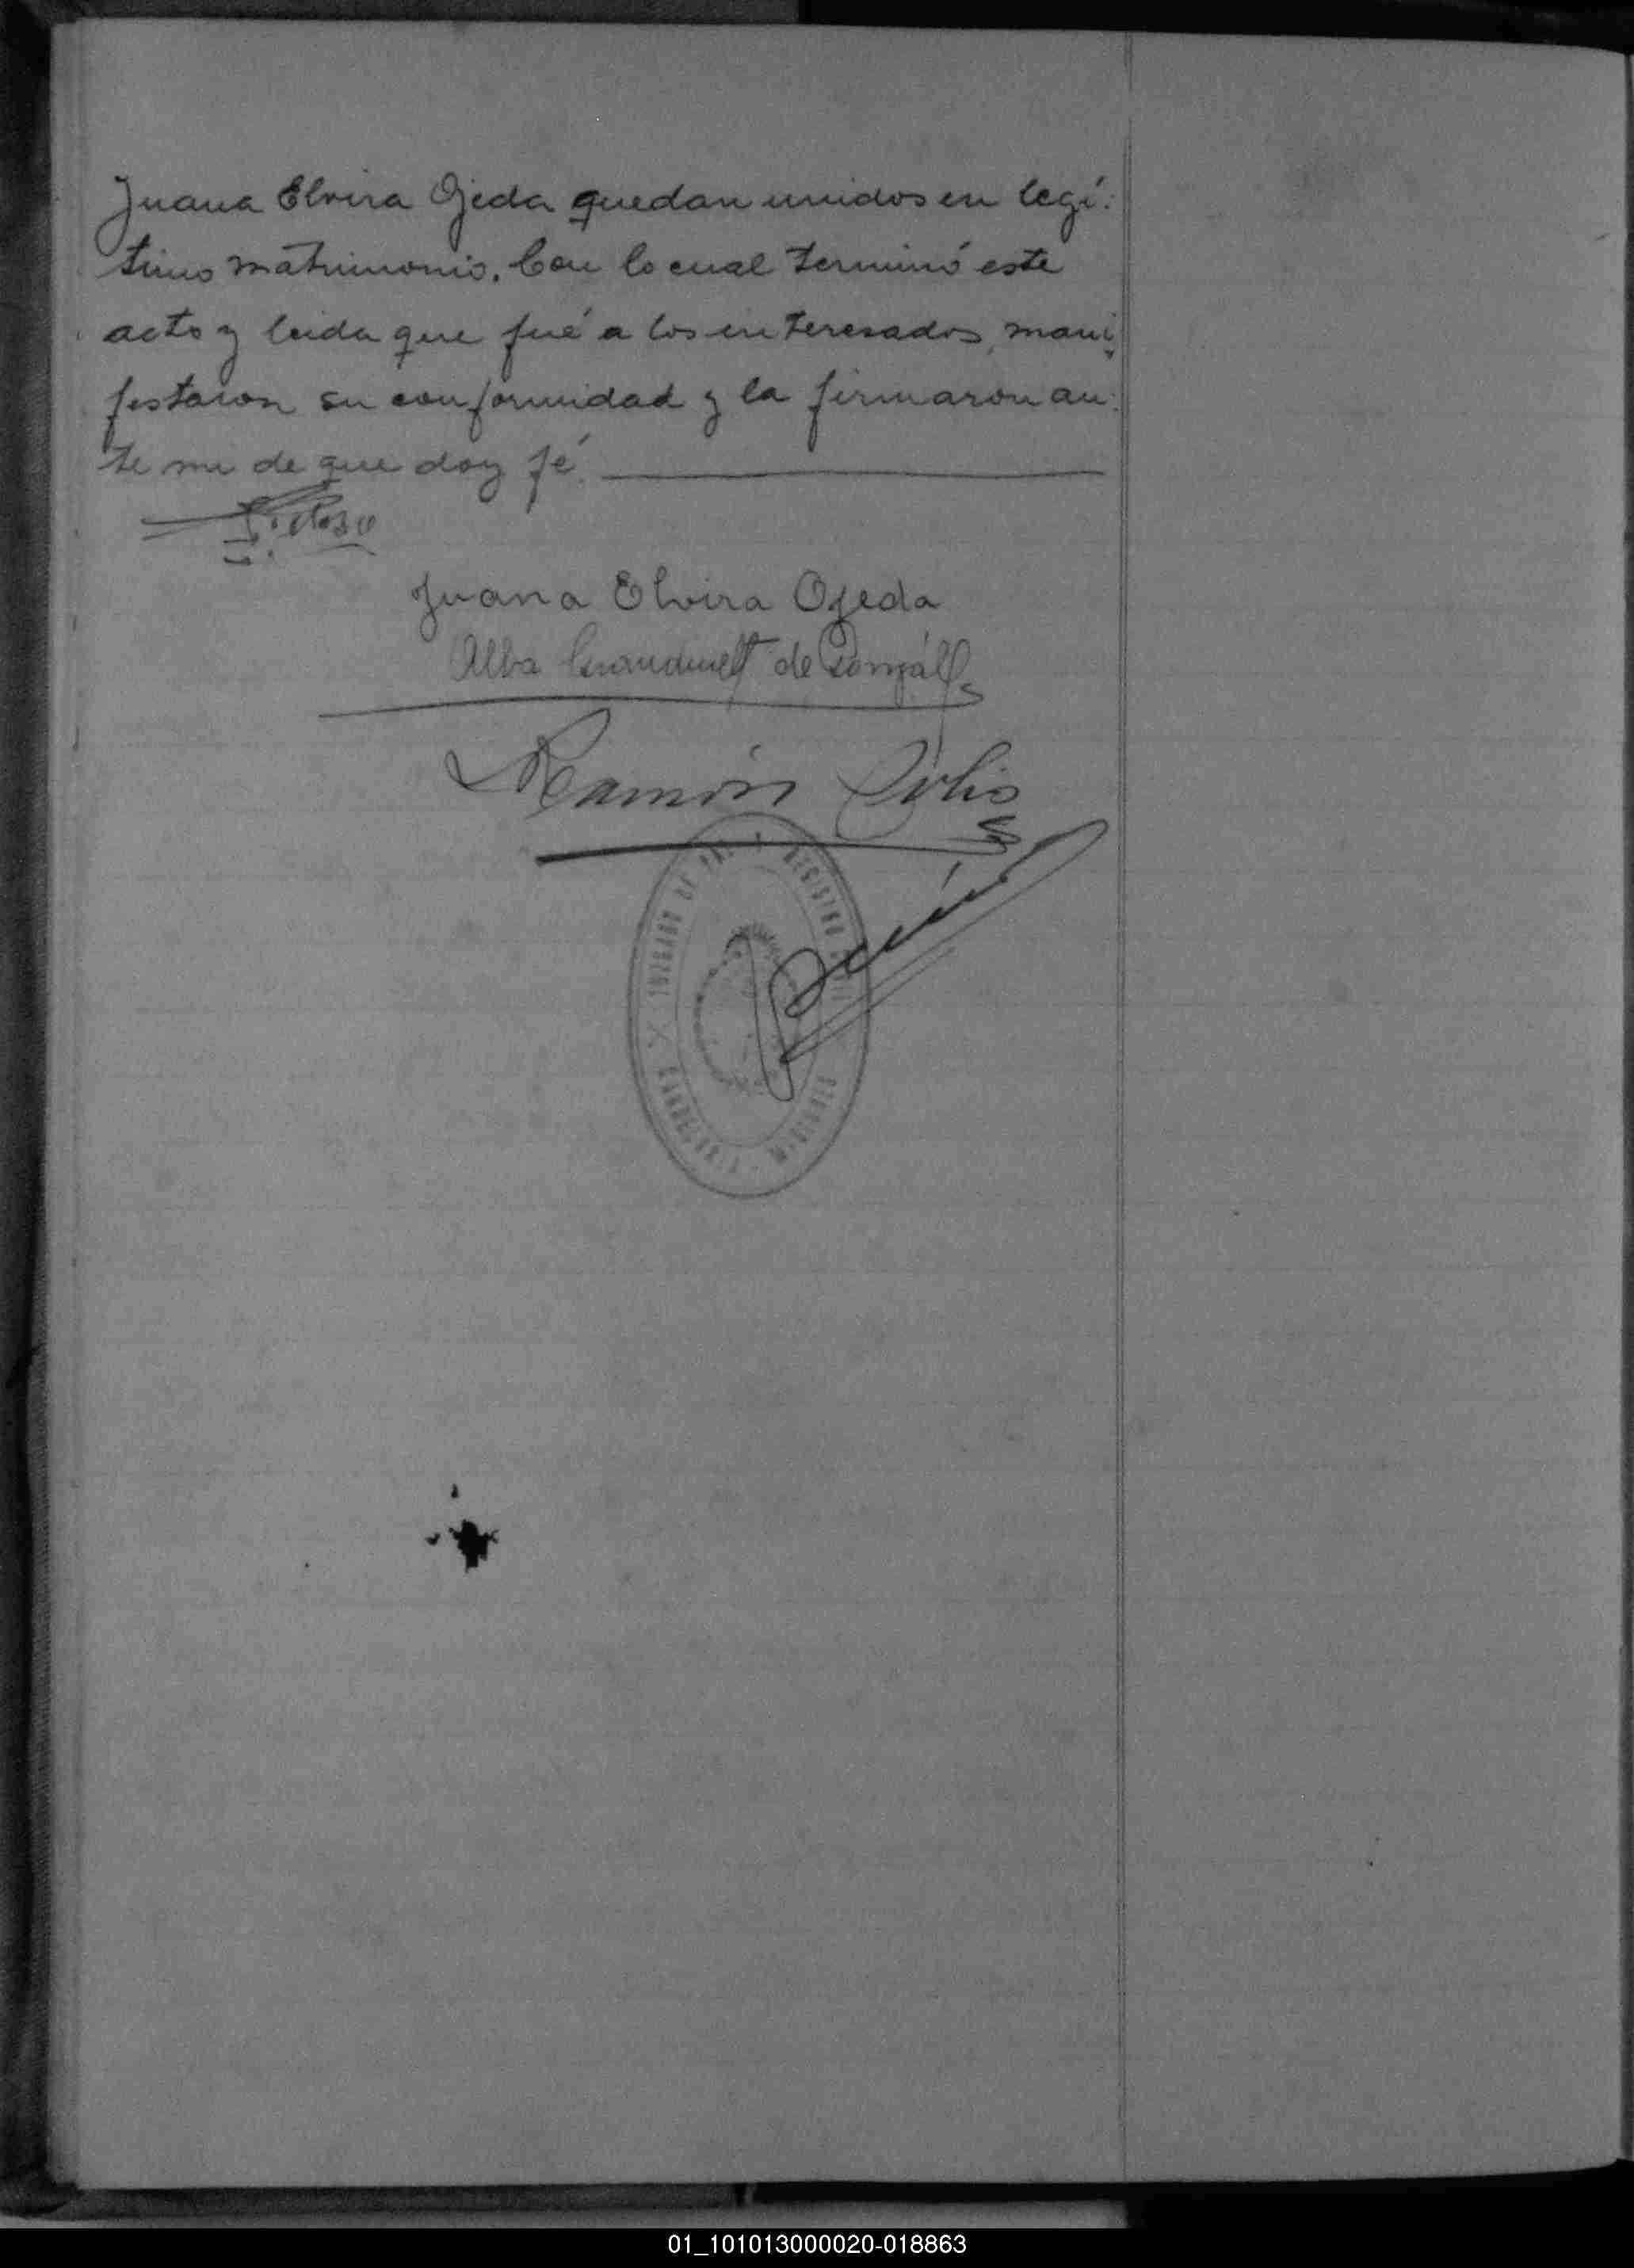 Juana Elvira Ojeda quedan unidos en legí-
timo matrimonio. Con lo cual terminó este
acto y leida que fué a los interesados, mani-
festaron su conformidad y la firmaron an-
te mi de que doy fé.
Juana Elvira Ojeda
Alba de
Ramón Solis
JUZGADO DE PAZ REGISTRO CIVIL
CANDELARIA - MISIONES
01_101013000020-018863